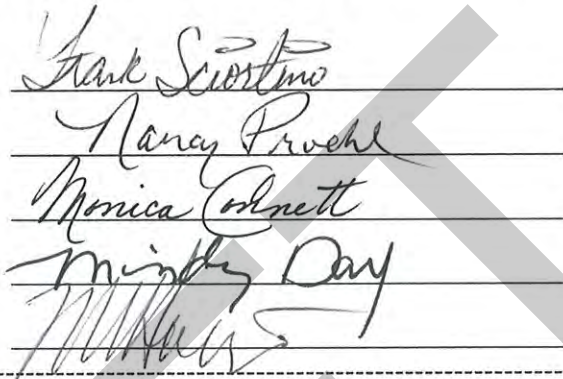 Frank Sciortino
Nancy Proehl
Monica Connett
Mindy Day